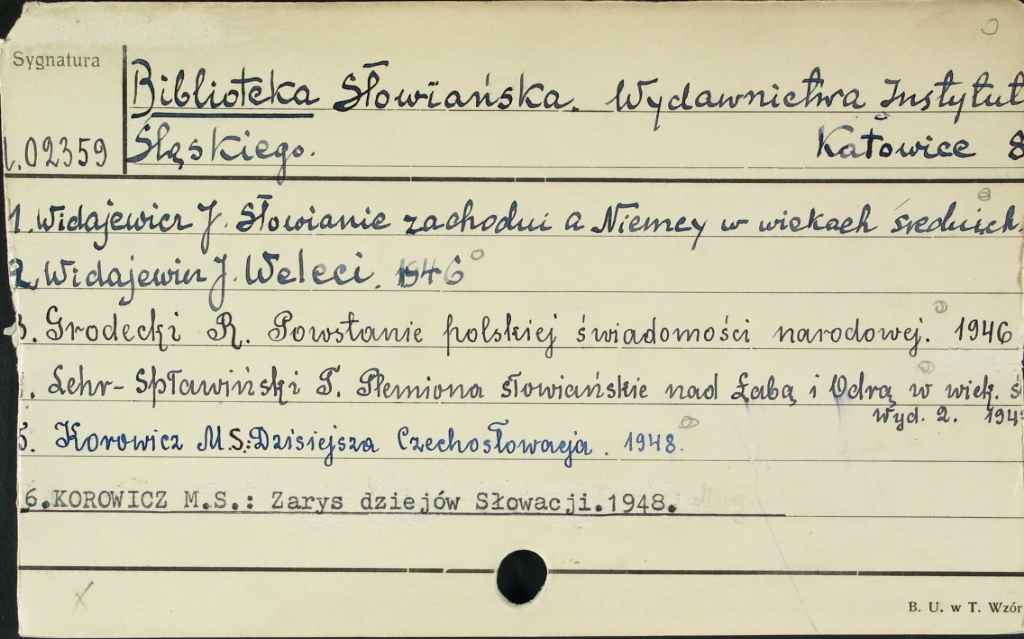 Sygnatura
Biblioteka Słowiańska. Wydawnictwa Instytut
02359 Śląskiego. Katowice 8
1. Widajewicz J. Słowianie zachodni a Niemcy w wiekach średnich.
2. Widajewicz J. Weleci. 1946
3. Grodecki R. Powstanie polskiej świadomości narodowej. 1946
Lehr-Spławiński T. Plemiona słowiańskie nad Łabą i Odrą w wiek. ś
Wyd. 2. 194
5. Korowicz M.S.: Dzisiejsza Czechosłowacja. 1948.
6.KOROWICZ M.S.: Zarys dziejów Słowacji.1948.
B. U. w T. Wzór